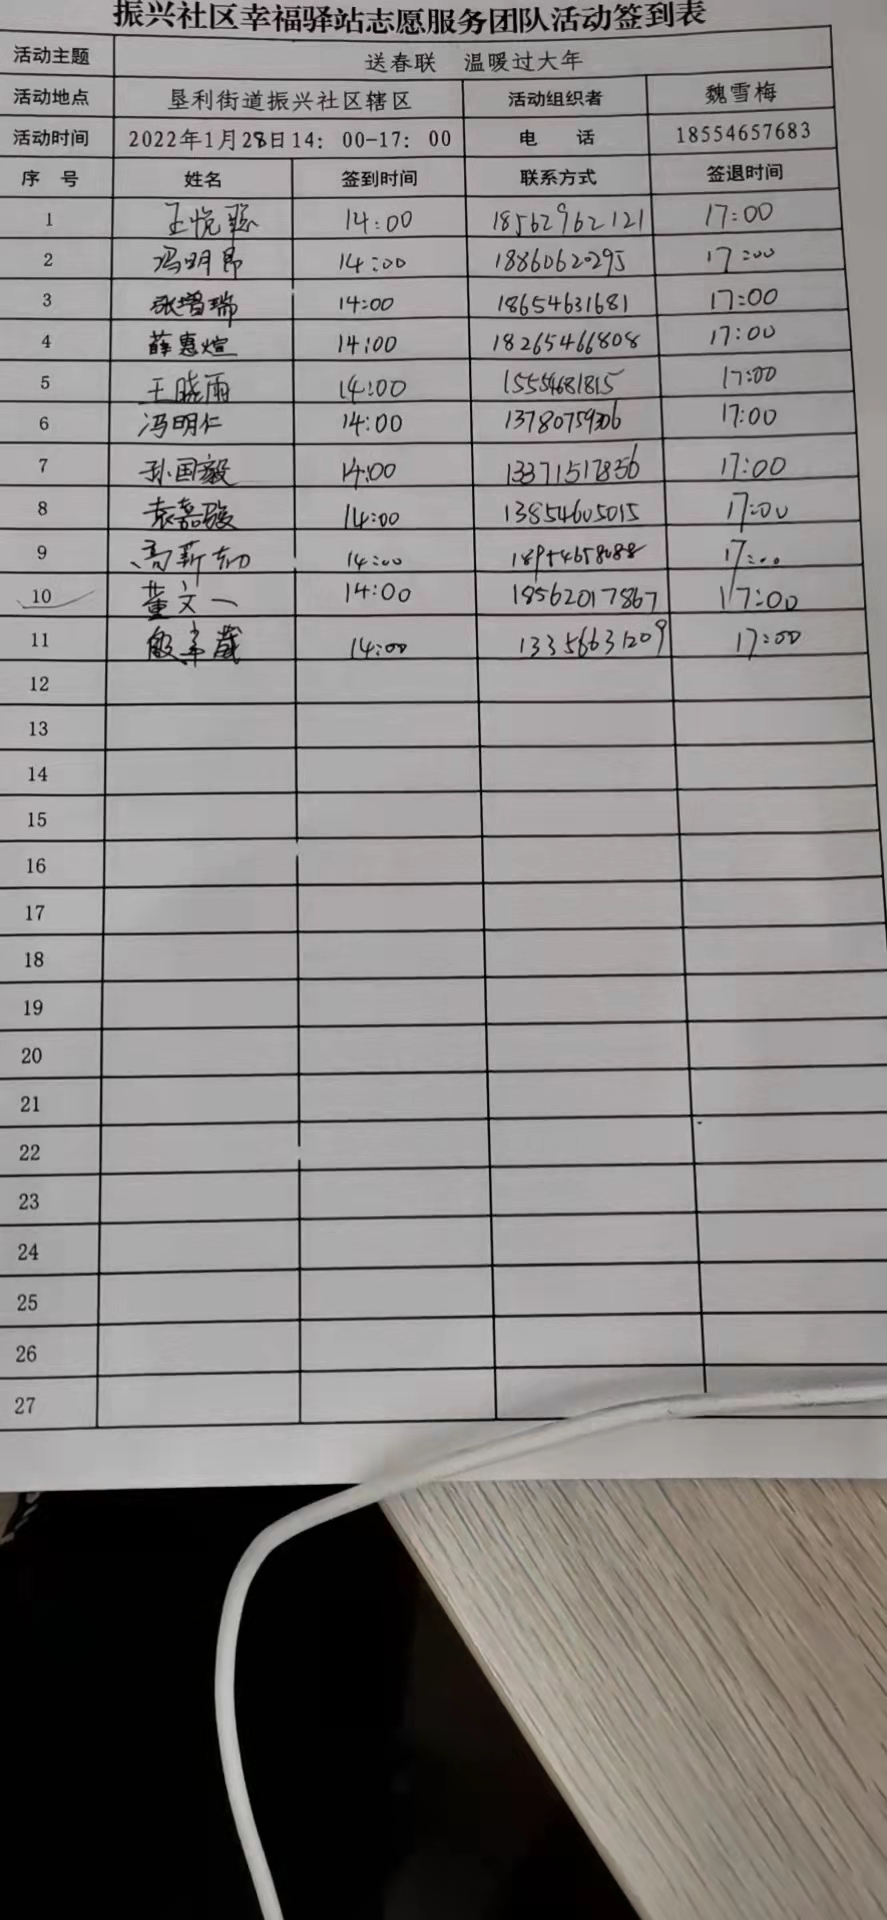 振兴社区幸福驿站志愿服务团队活动签到表
活动主题 送春联 温暖过大年
活动地点 垦利街道振兴社区辖区 活动组织者 魏雪梅
活动时间 2022年1月28日14：00-17：00 电 话 18554657683
序 号 姓名 签到时间 联系方式 签退时间
1 王悦 14:00 18562962121 17:00
2 冯明昂 14:00 18860620295 17:00
3 张增瑞 14:00 18654631681 17:00
4 薛惠煊 14:00 18265466808 17:00
5 王晓雨 14:00 15554681815 17:00
6 冯明仁 14:00 17:00
7 孙国毅 14:00 13371517856 17:00
8 袁嘉骏 14:00 13854605015 17:00
9 高新 14:00 17:00
10 董文一 14:00 18562017867 17:00
11 殷 14:00 13356631209 17:00
12
13
14
15
16
17
18
19
20
21
22
23
24
25
26
27